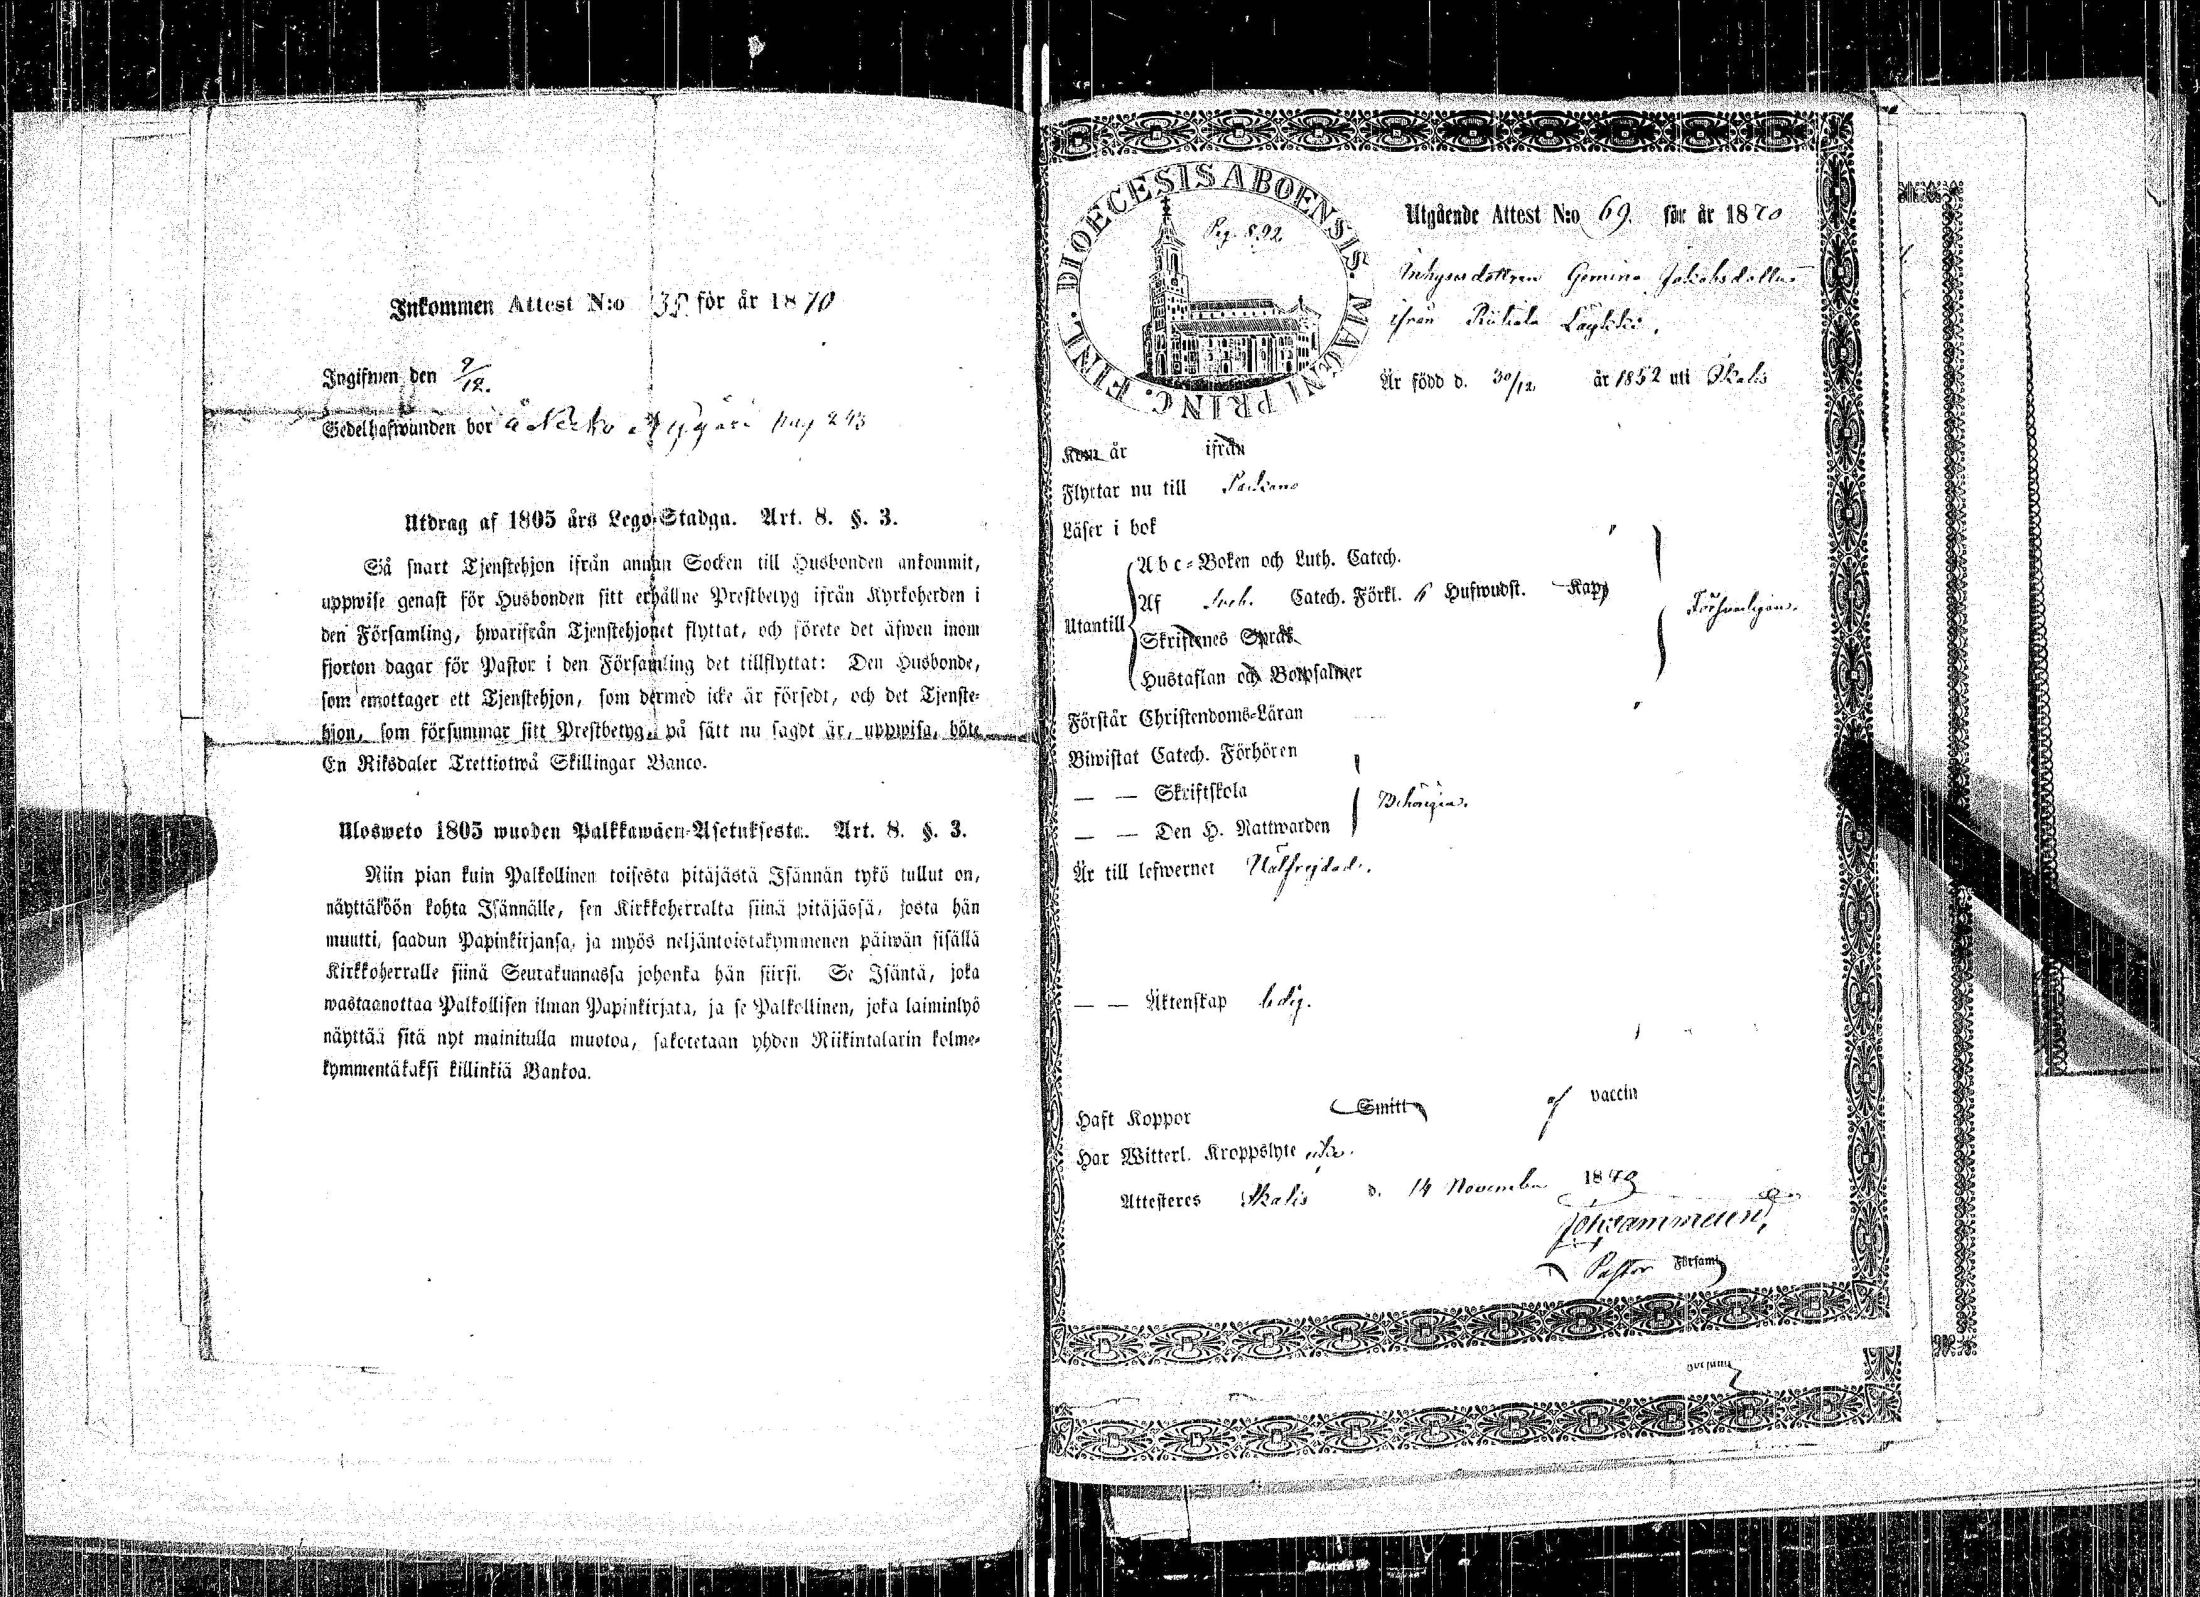 Inkommen Attest N:o 39 för år 1870
Ingifwen den 9/12.
Sedelhafwanden bor å Nygård pag 243
Utdrag af 1805 års Lego-Stadga. Art. 8. §. 3.
Så snart Tjenstehjon ifrån annan Socken till Husbonden ankommit,
uppwise genast för Husbonden sitt erhållne Prestbetyg ifrån Kyrkoherden i
den Församling, hwarifrån Tjenstehjonet flyttat, och förete det äfwen inom
fjorton dagar för Pastor i den Församling det tillflyttat: Den Husbonde,
som emottager ett Tjenstehjon, som dermed icke är försedt, och det Tjenste-
hjon, som försummar sitt Prestbetyg, på sätt nu sagdt är, uppwisa, böte
En Riksdaler Trettiotwå Skillingar Banco.
Ulosweto 1805 wuoden Palkkawäen-Asetuksesta. Art. 8. §. 3.
Niin pian kuin Palkollinen toisesta pitäjästä Isännän tykö tullut on,
näyttäköön kohta Isännälle, sen Kirkkoherralta siinä pitäjässä, josta hän
muutti, saadun Papinkirjansa, ja myös neljäntoistakymmenen päiwän sisällä
Kirkkoherralle siinä Seurakunnassa johonka hän siirsi. Se Isäntä, joka
wastaanottaa Palkollisen ilman Papinkirjata, ja se Palkollinen, joka laiminlyö
näyttää sitä nyt mainitulla muotoa, sakotetaan yhden Riikintalarin kolme-
kymmentäkaksi killinkiä Bankoa.
DIOECESIS ABOENSIS. MAGNI PRINC. FINL.
Pag. 892
Utgående Attest N:o 69. för år 1870
Inhysesdottren Gemina Jakobsdotter
ifrån Riihiala Läykki.
Är född d. 30/12 år 1852 uti Akalis
Kom år ifrån
Flyttar nu till
Läser i bok
Abc-Boken och Luth. Catech.
Utantill
Af Catech. Förkl. 6 Hufwudst. Kap
Skriftenes Språk
Hustaflan och Botpsalmer
Försvarligen.
Förstår Christendoms-Läran
Biwistat Catech. Förhören
— — Skriftskola
— — Den H. Nattwarden
Behörigen.
Är till lefwernet Välfrejdad.
— — Äktenskap ledig.
Haft Koppor Smitt af vaccin
Har Witterl. Kroppslyte icke.
Attesteres Akalis d. 14 November 1870
Pastor Församl